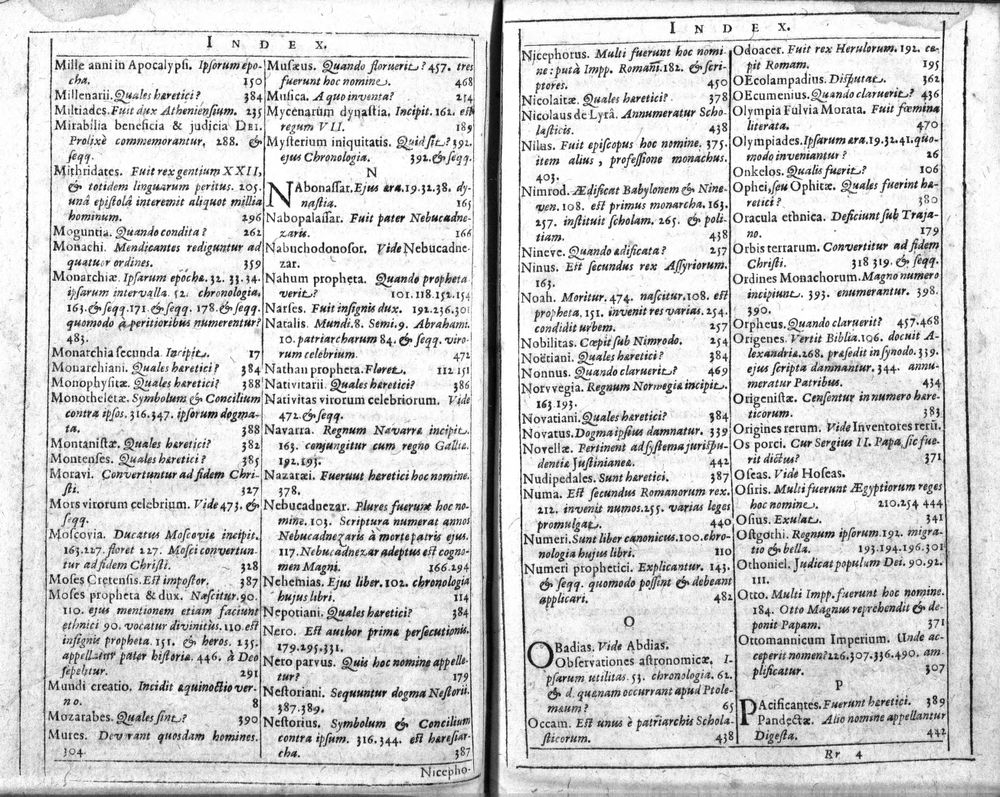 INDEX.
Mille anni in Apocalypsi. Ipsorum epo-
cha. 150
Millenarii. Quales hæretici? 384
Miltiades. Fuit dux Atheniensium. 235
Mirabilia beneficia & judicia DEI.
Prolixè commemorantur, 288. &
seqq.
Mithridates. Fuit rex gentium XXII,
& totidem linguarum peritus. 205.
unâ epistolâ interemit aliquot millia
hominum. 296
Moguntia. Quando condita? 262
Monachi. Mendicantes rediguntur ad
quatuor ordines. 359
Monarchiæ. Ipsarum epochæ. 32. 33. 34.
ipsarum intervalla. 52. chronologia,
163. & seqq. 171. & seqq. 178. & seqq.
quomodo à peritioribus numerentur?
483.
Monarchia secunda. Incipit. 17
Monarchiani. Quales hæretici? 384
Monophysitæ. Quales hæretici? 388
Monotheletæ. Symbolum & Concilium
contra ipsos. 316. 347. ipsorum dogma-
ta. 388
Montanistæ. Quales hæretici? 382
Montenses. Quales hæretici? 385
Moravi. Convertuntur ad fidem Chri-
sti. 327
Mors virorum celebrium. Vide 473. &
seqq.
Moscovia. Ducatus Moscoviæ incipit.
163. 227. floret 227. Mosci convertun-
tur ad fidem Christi. 328
Moses Cretensis. Est impostor. 387
Moses propheta & dux. Nascitur. 90.
110. ejus mentionem etiam faciunt
ethnici 90. vocatur divinitus. 110. est
insignis propheta. 151. & heros. 135.
appellatur pater historiæ. 446. à Deo
sepelitur. 291
Mundi creatio. Incidit æquinoctio ver-
no. 8
Mozarabes. Quales sint? 390
Mures. Devorant quosdam homines.
304.
Musæus. Quando floruerit? 457. tres
fuerunt hoc nomine. 468
Musica. A quo inventa? 214
Mycenarum dynastia. Incipit. 162. est
regum VII. 189
Mysterium iniquitatis. Quid sit? 392.
ejus Chronologia. 392. & seqq.
N
NAbonassar. Ejus æra. 19. 32. 38. dy-
nastia. 165
Nabopalassar. Fuit pater Nebucadne-
zaris. 166
Nabuchodonosor. Vide Nebucadne-
zar.
Nahum propheta. Quando propheta
verit? 101. 118. 152. 154
Narses. Fuit insignis dux. 192. 236. 301
Natalis. Mundi. 8. Semi. 9. Abrahami.
10. patriarcharum 84. & seqq. viro-
rum celebrium. 472
Nathan propheta. Floret. 112 151
Nativitarii. Quales hæretici? 386
Nativitas virorum celebriorum. Vide
472. & seqq.
Navarra. Regnum Navarræ incipit.
163. conjungitur cum regno Galliæ.
192. 193.
Nazaræi. Fuerunt hæretici hoc nomine.
378.
Nebucadnezar. Plures fuerunt hoc no-
mine. 103. Scriptura numerat annos
Nebucadnezaris à morte patris ejus.
117. Nebucadnezar adeptus est cogno-
men Magni. 166. 294
Nehemias. Ejus liber. 102. chronologia
hujus libri. 114
Nepotiani. Quales hæretici? 384
Nero. Est author primæ persecutionis.
179. 295. 331.
Nero parvus. Quis hoc nomine appelle-
tur? 179
Nestoriani. Sequuntur dogma Nestorii.
387. 389.
Nestorius. Symbolum & Concilium
contra ipsum. 316. 344. est hæresiar-
cha. 387
Nicepho-
INDEX.
Nicephorus. Multi fuerunt hoc nomi-
ne: putà Impp. Romani. 182. & scri-
ptores. 450
Nicolaitæ. Quales hæretici? 378
Nicolaus de Lyrâ. Annumeratur Scho-
lasticis. 438
Nilus. Fuit episcopus hoc nomine. 375.
item alius, professione monachus.
403.
Nimrod. Ædificat Babylonem & Nine-
ven. 108. est primus monarcha. 163.
257. instituit scholam. 265. & poli-
tiam. 438
Nineve. Quando ædificata? 257
Ninus. Est secundus rex Assyriorum.
163.
Noah. Moritur. 474. nascitur. 108. est
propheta. 151. invenit res varias. 254.
condidit urbem. 257
Nobilitas. Cœpit sub Nimrodo. 254
Noëtiani. Quales hæretici? 384
Nonnus. Quando claruerit? 469
Norvvegia. Regnum Norwegiæ incipit.
163. 193.
Novatiani. Quales hæretici? 384
Novatus. Dogma ipsius damnatur. 339
Novellæ. Pertinent ad systema jurispu-
dentiæ Justinianeæ. 442
Nudipedales. Sunt hæretici. 387
Numa. Est secundus Romanorum rex.
212. invenit numos. 255. varias leges
promulgat. 440
Numeri. Sunt liber canonicus. 100. chro-
nologia hujus libri. 110
Numeri prophetici. Explicantur. 143.
& seqq. quomodo possint & debeant
applicari. 482
O
OBadias. Vide Abdias.
Observationes astronomicæ. I-
psarum utilitas. 53. chronologia. 62.
& d. quænam occurrant apud Ptole-
mæum? 65
Occam. Est unus è patriarchis Schola-
sticorum. 438
Odoacer. Fuit rex Herulorum. 192. ce-
pit Romam. 195
OEcolampadius. Disputat. 362
OEcumenius. Quando claruerit? 436
Olympia Fulvia Morata. Fuit fœmina
literata. 470
Olympiades. Ipsarum æra. 19. 32. 41. quo-
modo inveniantur? 26
Onkelos. Qualis fuerit? 106
Ophei, seu Ophitæ. Quales fuerint hæ-
retici? 380
Oracula ethnica. Deficiunt sub Traja-
no. 179
Orbis terrarum. Convertitur ad fidem
Christi. 318 319. & seqq.
Ordines Monachorum. Magno numero
incipiunt. 393. enumerantur. 398.
390.
Orpheus. Quando claruerit? 457. 468
Origenes. Vertit Biblia. 106. docuit A-
lexandriæ. 268. præsedit in synodo. 339.
ejus scripta damnantur. 344. annu-
meratur Patribus. 434
Origenistæ. Censentur in numero hære-
ticorum. 383
Origines rerum. Vide Inventores rerū.
Os porci. Cur Sergius II. Papa sic fue-
rit dictus? 371
Oseas. Vide Hoseas.
Osiris. Multi fuerunt Ægyptiorum reges
hoc nomine. 210. 254 444
Osius. Exulat. 341
Ostgothi. Regnum ipsorum. 192. migra-
tio & bella. 193. 194. 196. 301
Othoniel. Judicat populum Dei. 90. 92.
111.
Otto. Multi Impp. fuerunt hoc nomine.
184. Otto Magnus reprehendit & de-
ponit Papam. 371
Ottomannicum Imperium. Unde ac-
ceperit nomen? 226. 307. 336. 490. am-
plificatur. 307
P
PAcificantes. Fuerunt hæretici. 389
Pandectæ. Alio nomine appellantur
Digesta. 442
Rr 4